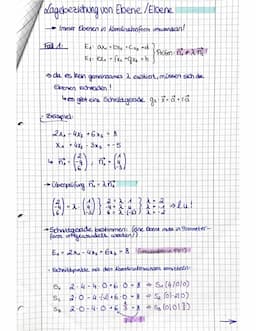 Lagebeziehung von Ebene/Ebene
→ Immer Ebenen in Koordinatenform umwandeln!
Fall 1: E₁: ax₁ + bx₂ + cx₃ = d
E₂: ex₁ + fx₂ + gx₃ = h
Prüfen: n⃗₁ = λ n⃗₂
→ da es kein gemeinsames λ existiert, müssen sich die
Ebenen schneiden!
↳ es gibt eine Schnittgerade g: x⃗ = a⃗ + r u⃗
→ Beispiel:
2x₁ - 4x₂ + 6x₃ = 8
x₁ + 4x₂ - 3x₃ = -5
→ Überprüfung n⃗₁ = λ n⃗₂
→ l.u.!
→ Schnittgerade bestimmen: (eine Ebene muss in Parameter-
form umgewandelt werden!)
E₁ = 2x₁ - 4x₂ + 6x₃ = 8
→ Schnittpunkte mit den Koordinatenachsen ermitteln:
S₁ 2 · 4 - 4 · 0 + 6 · 0 = 8 → S₁ (4|0|0)
S₂ 2 · 0 - 4 · (-2) + 6 · 0 = 8 → S₂ (0|-2|0)